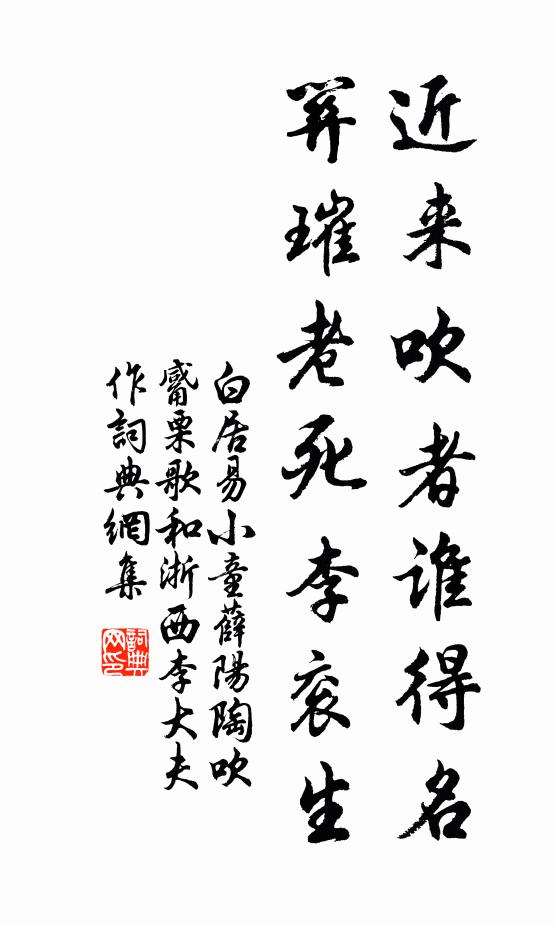 近来吹者谁得名
關璀老死李衮生
白居易小童薛陽陶吹
觱栗歌和浙西李大夫
作詞典網集
詞典
网印